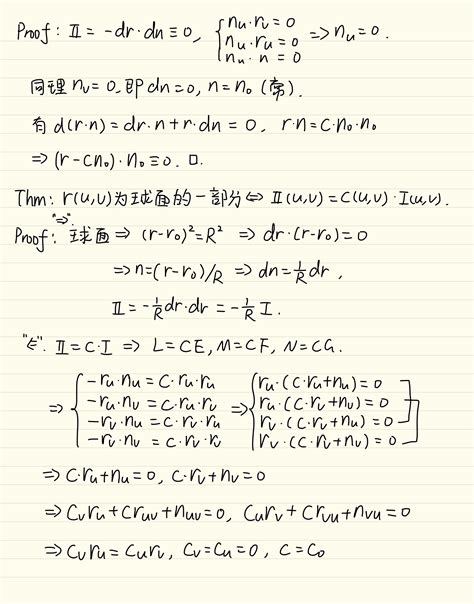 Proof: II = -dr·dn ≡ 0, { n_u·r_v = 0 n_u·r_u = 0 n_u·n = 0 => n_u = 0.
同理 n_v = 0, 即 dn = 0, n = n_0 (常).
有 d(r·n) = dr·n + r·dn = 0, r·n = C·n_0·n_0
=> (r - Cn_0)·n_0 ≡ 0. □.
Thm: r(u,v)为球面的一部分 <=> II(u,v) = C(u,v)·I(u,v).
"=>"
Proof: 球面 => (r-r_0)² = R² => dr·(r-r_0) = 0
=> n = (r-r_0)/R => dn = 1/R dr,
II = -1/R dr·dr = -1/R I.
"<=". II = C·I => L = CE, M = CF, N = CG.
=> { -r_u·n_u = C·r_u·r_u => { r_u·(C·r_u+n_u) = 0
-r_u·n_v = C·r_u·r_v r_u·(C·r_v+n_v) = 0
-r_v·n_u = C·r_v·r_u r_v·(C·r_u+n_u) = 0
-r_v·n_v = C·r_v·r_v r_v·(C·r_v+n_v) = 0
=> C·r_u+n_u = 0, C·r_v+n_v = 0
=> C_v r_u + C r_uv + n_uv = 0, C_u r_v + C r_vu + n_vu = 0
=> C_v r_u = C_u r_v, C_v = C_u = 0, C = C_0